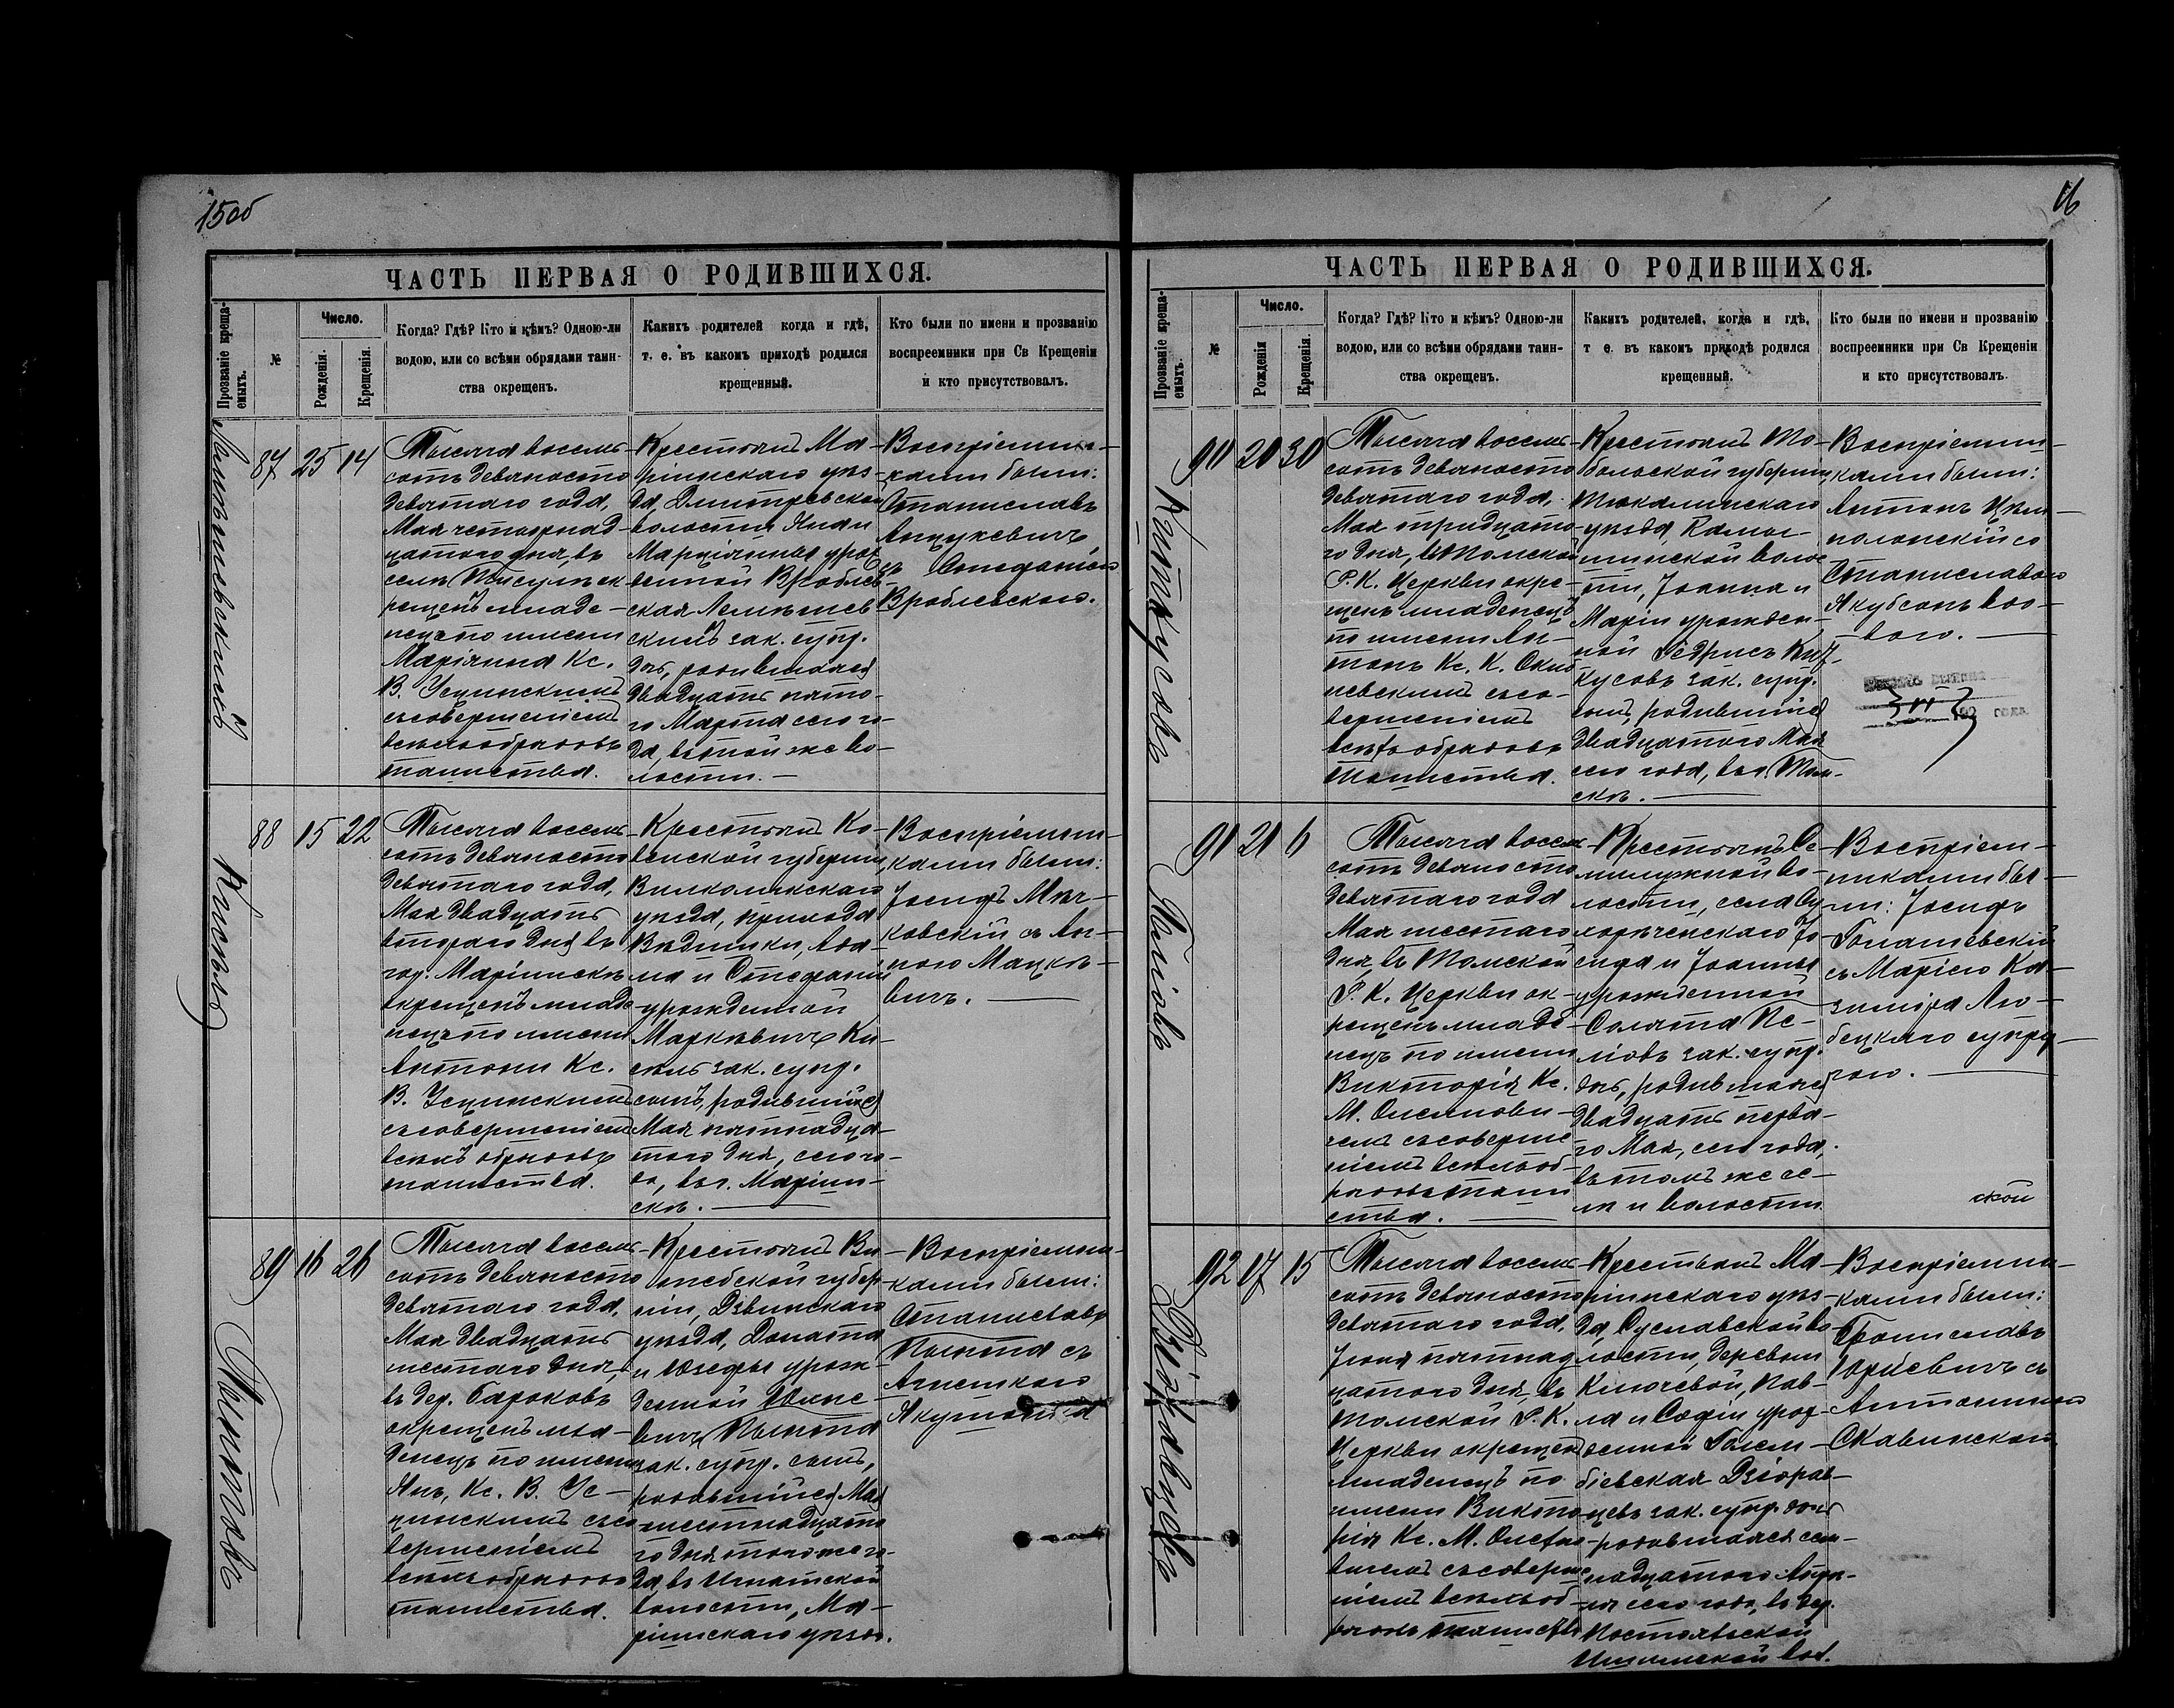 15об
ЧАСТЬ ПЕРВАЯ О РОДИВШИХСЯ.
Прозваніе креща-
емыхъ.
№
Число.
Рожденія.
Крещенія.
Когда? Гдѣ? Кто и кѣмъ? Одною-ли
водою, или со всѣми обрядами таин-
ства окрещенъ.
Какихъ родителей когда и гдѣ,
т. е. въ какомъ приходѣ родился
крещенный.
Кто были по имени и прозванію
воспреемники при Св Крещеніи
и кто присутствовалъ.
87
25
14
Тысяча восемь-
сотъ девяносто
девятаго года,
Мая четырнад-
цатого дня, въ
селѣ Тисулѣ ок-
рещенъ младе-
нецъ по имени
Маріянна Кс.
В. Усцинскимъ
съ совершеніемъ
всѣхъ обрядовъ
таинства.
Крестьянъ Ма-
ріинскаго уѣз-
да, Дмитревской
волости Яна и
Марціянны урож
денной Вроблев-
ская
скихъ зак. супр.
дчь, родившаяся
двадцать пято-
го Марта сего го-
да, въ той же во-
лости.
Воспріемни-
ками были:
Станиславъ
Анцукевичъ
съ Стефаніею
Вроблевскою.
88
15
22
Кисель
Тысяча восемь-
сотъ девяносто
девятаго года,
Мая двадцать
второго дня въ
гор. Маріинскѣ
окрещенъ младе
нецъ по имени
Антони Кс.
В. Усцинскимъ
съ совершеніемъ
всѣхъ обрядовъ
таинства.
Крестьянъ Ко-
венской губерніи,
Вилкомирскаго
уѣзда, прихода
Видишки, Ада-
ма и Стефаніи
урожденной
Маркевичъ Ки-
сель зак. супр.
сынъ, родившійся
Мая пятнадца-
того дня, сего го-
да, въ г. Маріин-
скѣ.
Воспріемни-
ками были:
Іосифъ Мац-
ковскій съ Ан-
ною Мацке-
вичъ.
89
16
26
Пыктовъ
Тысяча восемь-
сотъ девяносто
девятаго года,
Мая двадцать
шестаго дня,
въ дер. Бароковѣ
окрещенъ мла-
денецъ по имени
Янъ, Кс. В. Ус-
цинскимъ съ со
вершеніемъ
всѣхъ обрядовъ
таинства.
Крестьянъ Ви-
тебской губер-
ніи, Двинскаго
уѣзда, Доната
и Юзефы урож-
денной Юхне-
вичъ Пыкта
зак. супр. сынъ,
родившійся Мая
шестнадцато
го дня того же го-
да въ Итатской
волости, Ма-
ріинскаго уѣзда.
Воспріемни-
ками были:
Станиславъ
Пыкта съ
Агнешкою
16
ЧАСТЬ ПЕРВАЯ О РОДИВШИХСЯ.
Прозваніе креща-
емыхъ.
№
Число.
Рожденія
Крещенія.
Когда? Гдѣ? Кто и кѣмъ? Одною-ли
водою, или со всѣми обрядами таин-
ства окрещенъ.
Какихъ родителей, когда и гдѣ,
т е. въ какомъ приходѣ родился
крещенный.
Кто были по имени и прозванію
воспреемники при Св Крещеніи
и кто присутствовалъ.
90
20
30
Киткусовъ
Тысяча восемь-
сотъ девяносто
девятаго года,
Мая тридцата-
го дня, въ Томской
Р. К. Церкви окре-
щенъ младенецъ
по имени Ан-
тонъ Кс. К.
съ со-
вершеніемъ
всѣхъ обрядовъ
таинства.
Крестьянъ То-
больской губерніи,
Тюкалинскаго
уѣзда, Камы-
шинской волос
ти, Іоанна и
Маріи урожден-
ной Гедрисъ Кит-
кусовъ зак. супр.
сынъ, родившійся
двадцатого Мая
сего года, въ г. Том-
скѣ.
Воспріемни-
ками были:
Антонъ
со
Станиславою
Якубсонъ вдо-
вою.
192 года
91
21
6
Тысяча восемь
сотъ девяносто
девятаго года
Мая шестаго
дня, въ Томской
Р. К. Церкви ок-
рещенъ младе-
нецъ по имени
Викторія Кс.
М. Олехнови-
чемъ съ соверше
ніемъ всѣхъ об-
рядовъ таин
ства.
Крестьянъ Се-
милужной во-
лости, села Су
хорѣченскаго Іо
сифа и Іоанны
урожденной
зак. супр.
дчь, родившаяся
двадцать перва-
го Мая, сего года,
въ томъ же се-
лѣ и волости
Воспріем-
никами бы-
ли: Іосифъ
съ Маріею Ка-
зиміра Лю-
бецкаго супру-
гою.
ской
92
17
15
Тысяча восемь-
сотъ девяносто
девятаго года,
Іюня пятнад
цатого дня, въ
Томской Р. К.
Церкви окрещенъ
младенецъ по
имени Викто-
рія Кс. М. Олехно-
вичемъ съ соверше
ніемъ всѣхъ об-
рядовъ таинства
Крестьянъ Ма-
ріинскаго уѣз-
да, Сусловской во-
лости, деревни
Ключевой, Пав-
ла и Софіи урож-
денной Голем-
біевская
зак. супр. дочь
родившаяся сем-
надцатого Апрѣ-
ля сего года, въ дер.
волос.
Воспріемни-
ками были:
Брониславъ
Юріевичъ съ
Антониною
Славинской